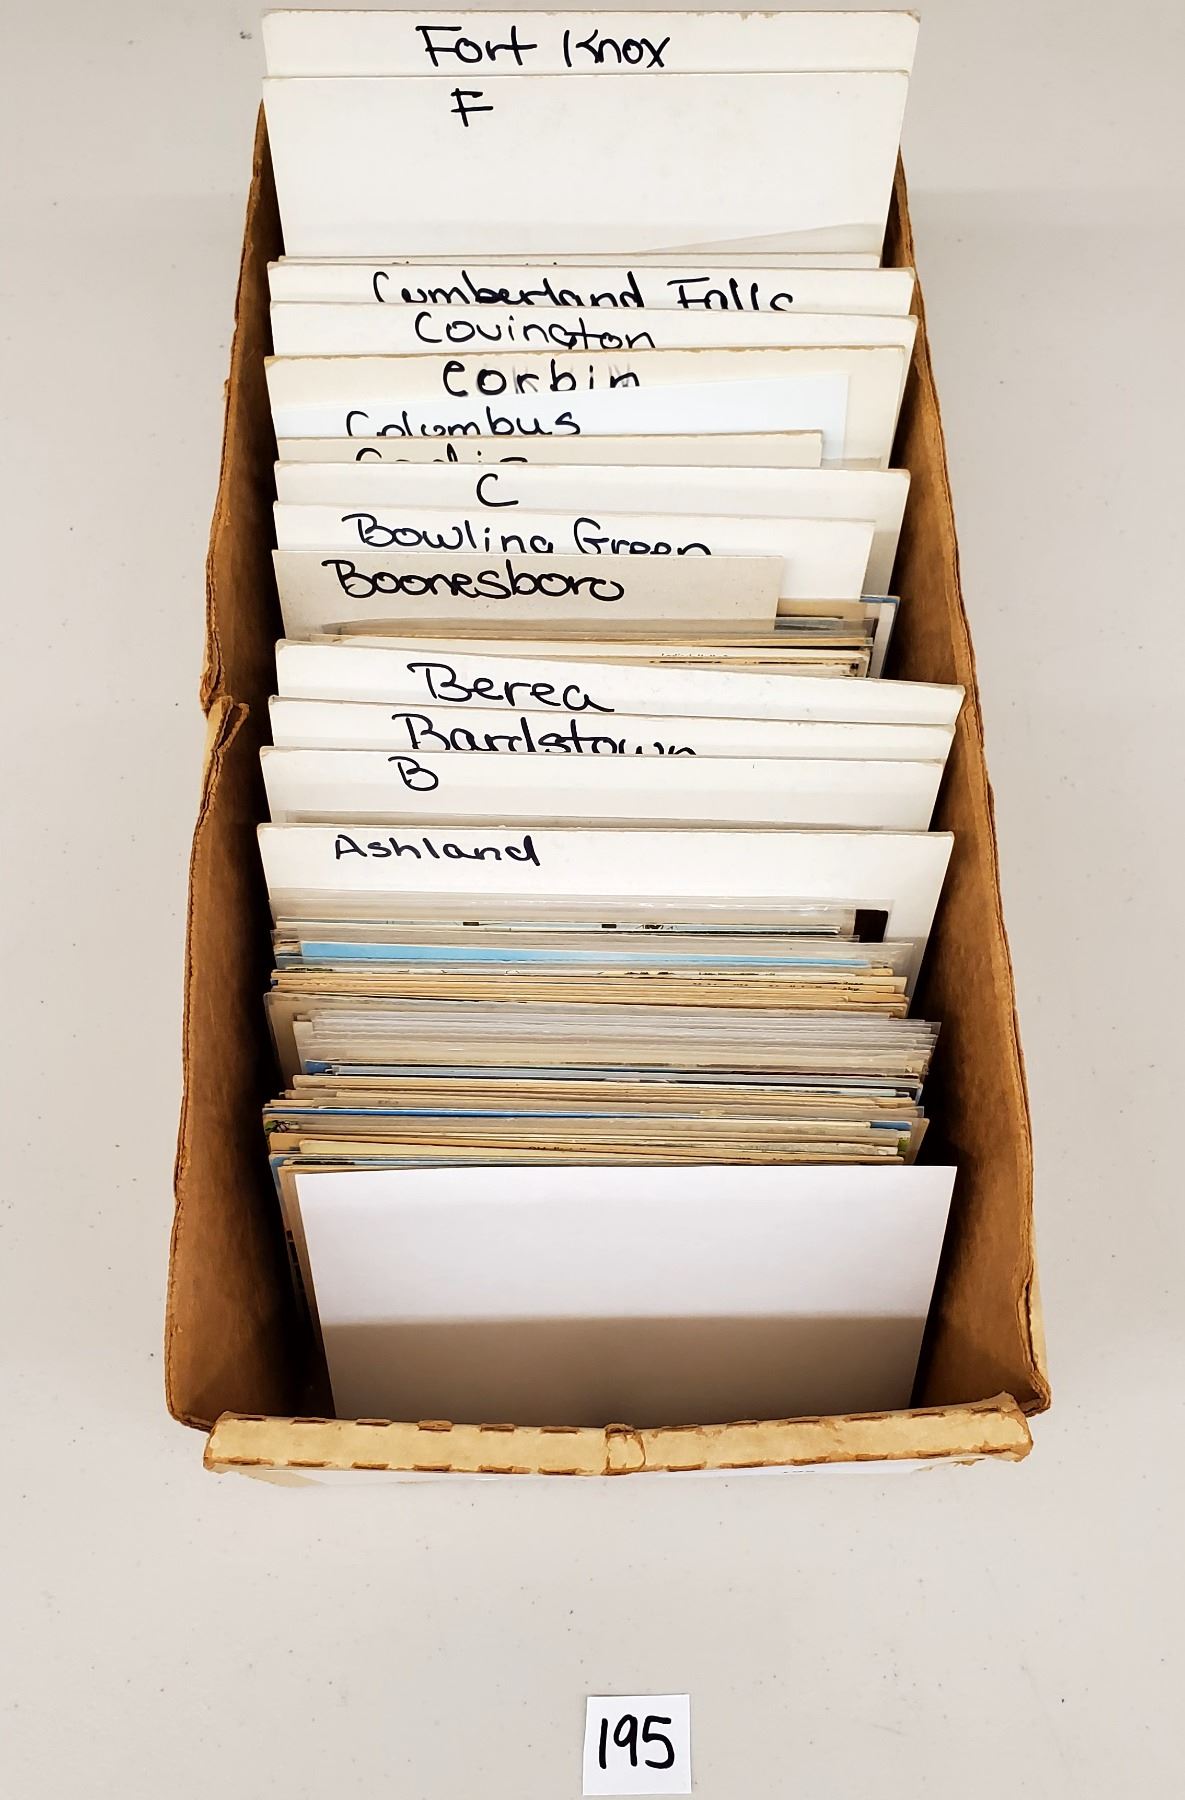 Fort Knox
F
Cumberland Falls
Covington
Corbin
Columbus
C
Bowling Green
Boonesboro
Berea
Bardstown
B
Ashland
195